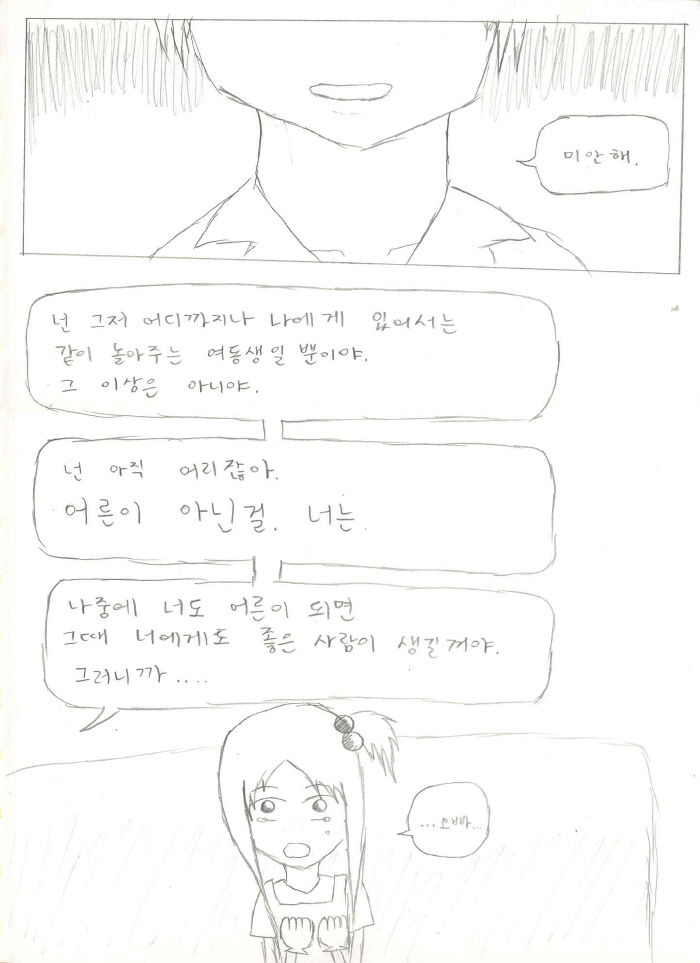 미안해.
넌 그저 어디까지나 나에게 있어서는
같이 놀아주는 여동생일 뿐이야.
그 이상은 아니야.
넌 아직 어리잖아.
어른이 아닌걸. 너는.
나중에 너도 어른이 되면
그때 너에게도 좋은 사람이 생길거야.
그러니까....
...오빠...